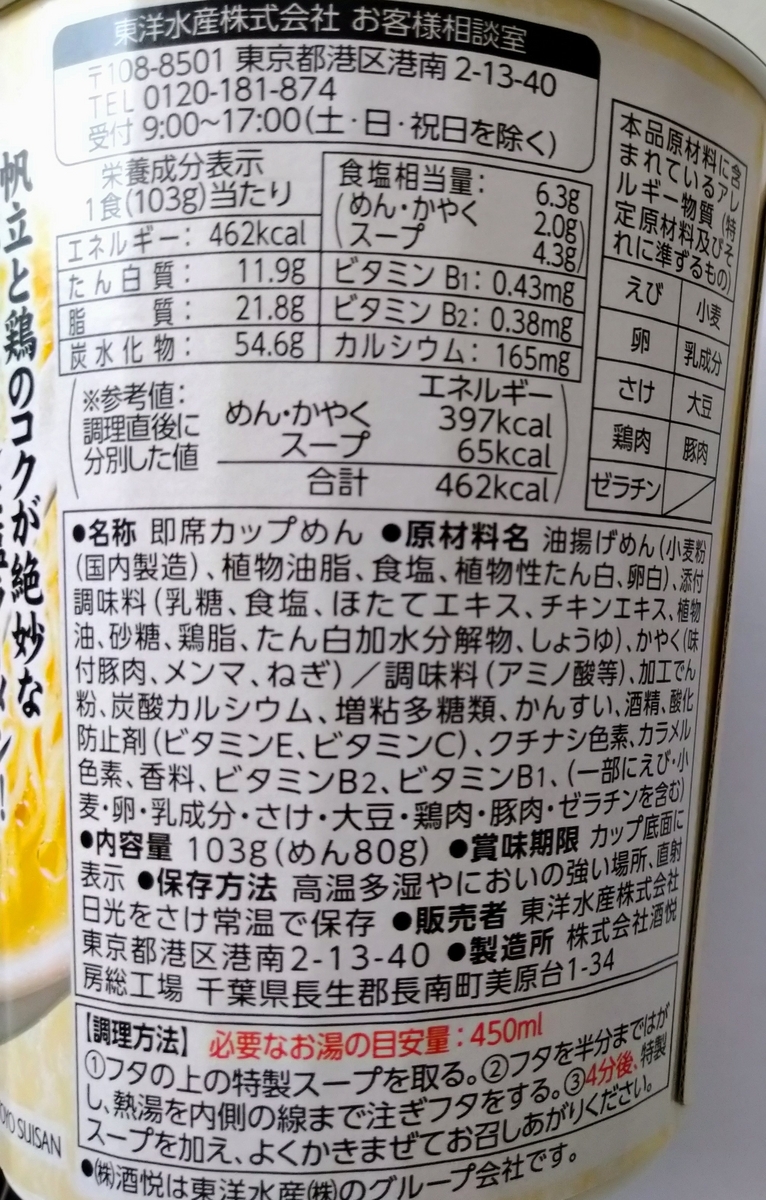 東洋水産株式会社 お客様相談室
〒108-8501 東京都港区港南 2-13-40
TEL 0120-181-874
受付 9:00~17:00(土・日・祝日を除く)
栄養成分表示
1食(103g)当たり
エネルギー: 462kcal
たん白質: 11.9g
脂質: 21.8g
炭水化物: 54.6g
食塩相当量: 6.3g
(めん・かやく 2.0g)
(スープ 4.3g)
ビタミン B1: 0.43mg
ビタミン B2: 0.38mg
カルシウム: 165mg
※参考値:
調理直後に
分別した値
エネルギー
めん・かやく 397kcal
スープ 65kcal
合計 462kcal
本品原材料に含
まれているアレ
ルギー物質(特
定原材料及びそ
れに準ずるもの)
えび 小麦
卵 乳成分
さけ 大豆
鶏肉 豚肉
ゼラチン
●名称 即席カップめん ●原材料名 油揚げめん(小麦粉
(国内製造)、植物油脂、食塩、植物性たん白、卵白)、添付
調味料(乳糖、食塩、ほたてエキス、チキンエキス、植物
油、砂糖、鶏脂、たん白加水分解物、しょうゆ)、かやく(味
付豚肉、メンマ、ねぎ)/調味料(アミノ酸等)、加工でん
粉、炭酸カルシウム、増粘多糖類、かんすい、酒精、酸化
防止剤(ビタミンE、ビタミンC)、クチナシ色素、カラメル
色素、香料、ビタミンB2、ビタミンB1、(一部にえび・小
麦・卵・乳成分・さけ・大豆・鶏肉・豚肉・ゼラチンを含む)
●内容量 103g(めん80g) ●賞味期限 カップ底面に
表示 ●保存方法 高温多湿やにおいの強い場所、直射
日光をさけ常温で保存 ●販売者 東洋水産株式会社
東京都港区港南2-13-40 ●製造所 株式会社酒悦
房総工場 千葉県長生郡長南町美原台1-34
【調理方法】 必要なお湯の目安量:450ml
①フタの上の特製スープを取る。②フタを半分まではが
し、熱湯を内側の線まで注ぎフタをする。③4分後、特製
スープを加え、よくかきまぜてお召しあがりください。
●㈱酒悦は東洋水産㈱のグループ会社です。
帆立と鶏のコクが絶妙な
TOYO SUISAN